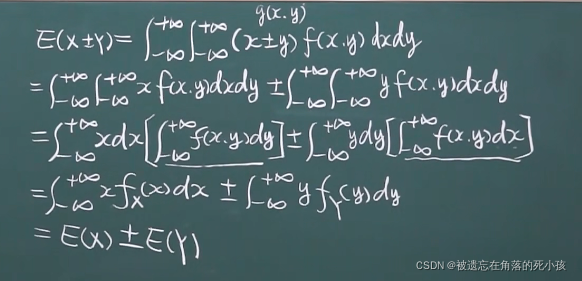 g(x.y)
E(X±Y)=∫_{-∞}^{+∞}∫_{-∞}^{+∞}(x±y)f(x.y)dxdy
=∫_{-∞}^{+∞}∫_{-∞}^{+∞}xf(x.y)dxdy±∫_{-∞}^{+∞}∫_{-∞}^{+∞}yf(x.y)dxdy
=∫_{-∞}^{+∞}xdx[∫_{-∞}^{+∞}f(x.y)dy]±∫_{-∞}^{+∞}ydy[∫_{-∞}^{+∞}f(x.y)dx]
=∫_{-∞}^{+∞}xf_X(x)dx±∫_{-∞}^{+∞}yf_Y(y)dy
=E(X)±E(Y)
CSDN @被遗忘在角落的死小孩